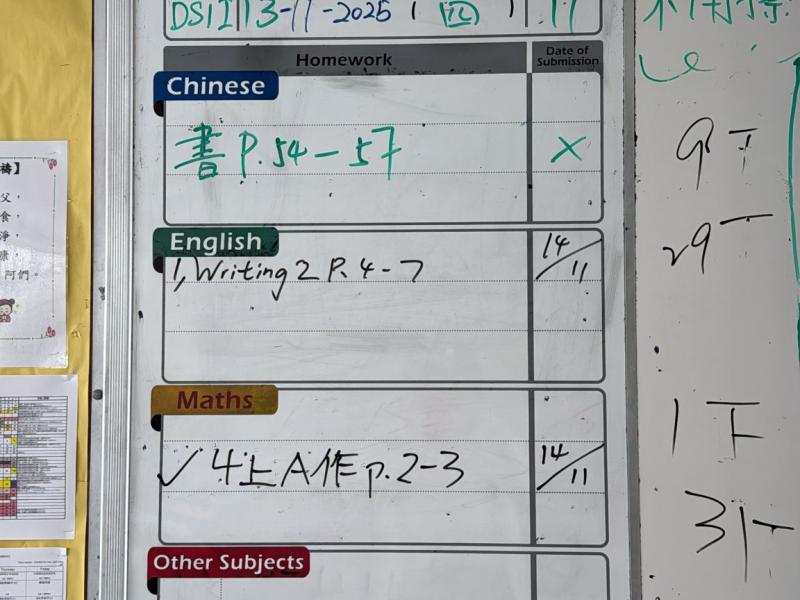 DSI2 13-11-2025 (四) 17
Homework
Date of Submission
Chinese
書 P.54-57 X
English
1, Writing 2 P. 4-7 14/11
Maths
✓ 4上A作 p.2-3 14/11
Other Subjects
9下
29下
1下
31下
父，
食，
淨，
阿們。
Thursday Friday